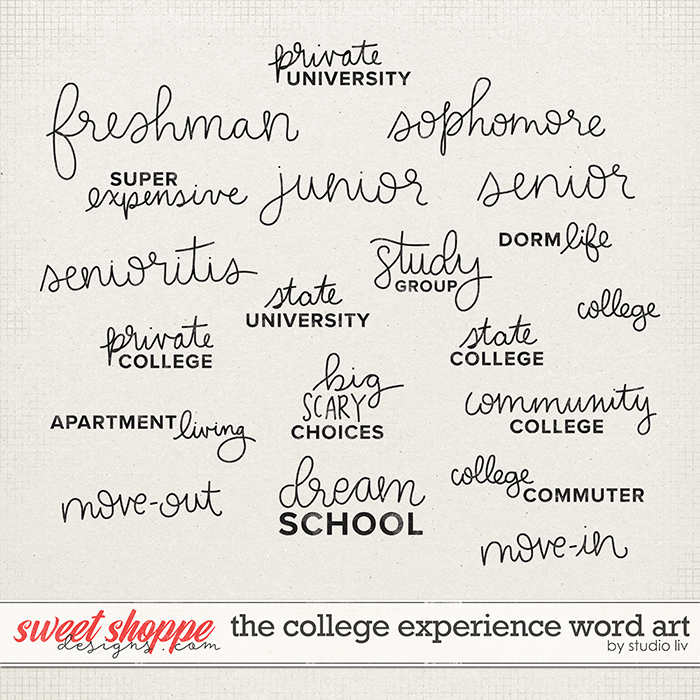 private
UNIVERSITY
freshman
sophomore
SUPER
expensive
junior
senior
senioritis
study
GROUP
DORM life
state
UNIVERSITY
college
private
COLLEGE
state
COLLEGE
big
SCARY
CHOICES
community
COLLEGE
APARTMENT living
move-out
dream
SCHOOL
college
COMMUTER
move-in
sweet shoppe
designs.com
the college experience word art
by studio liv